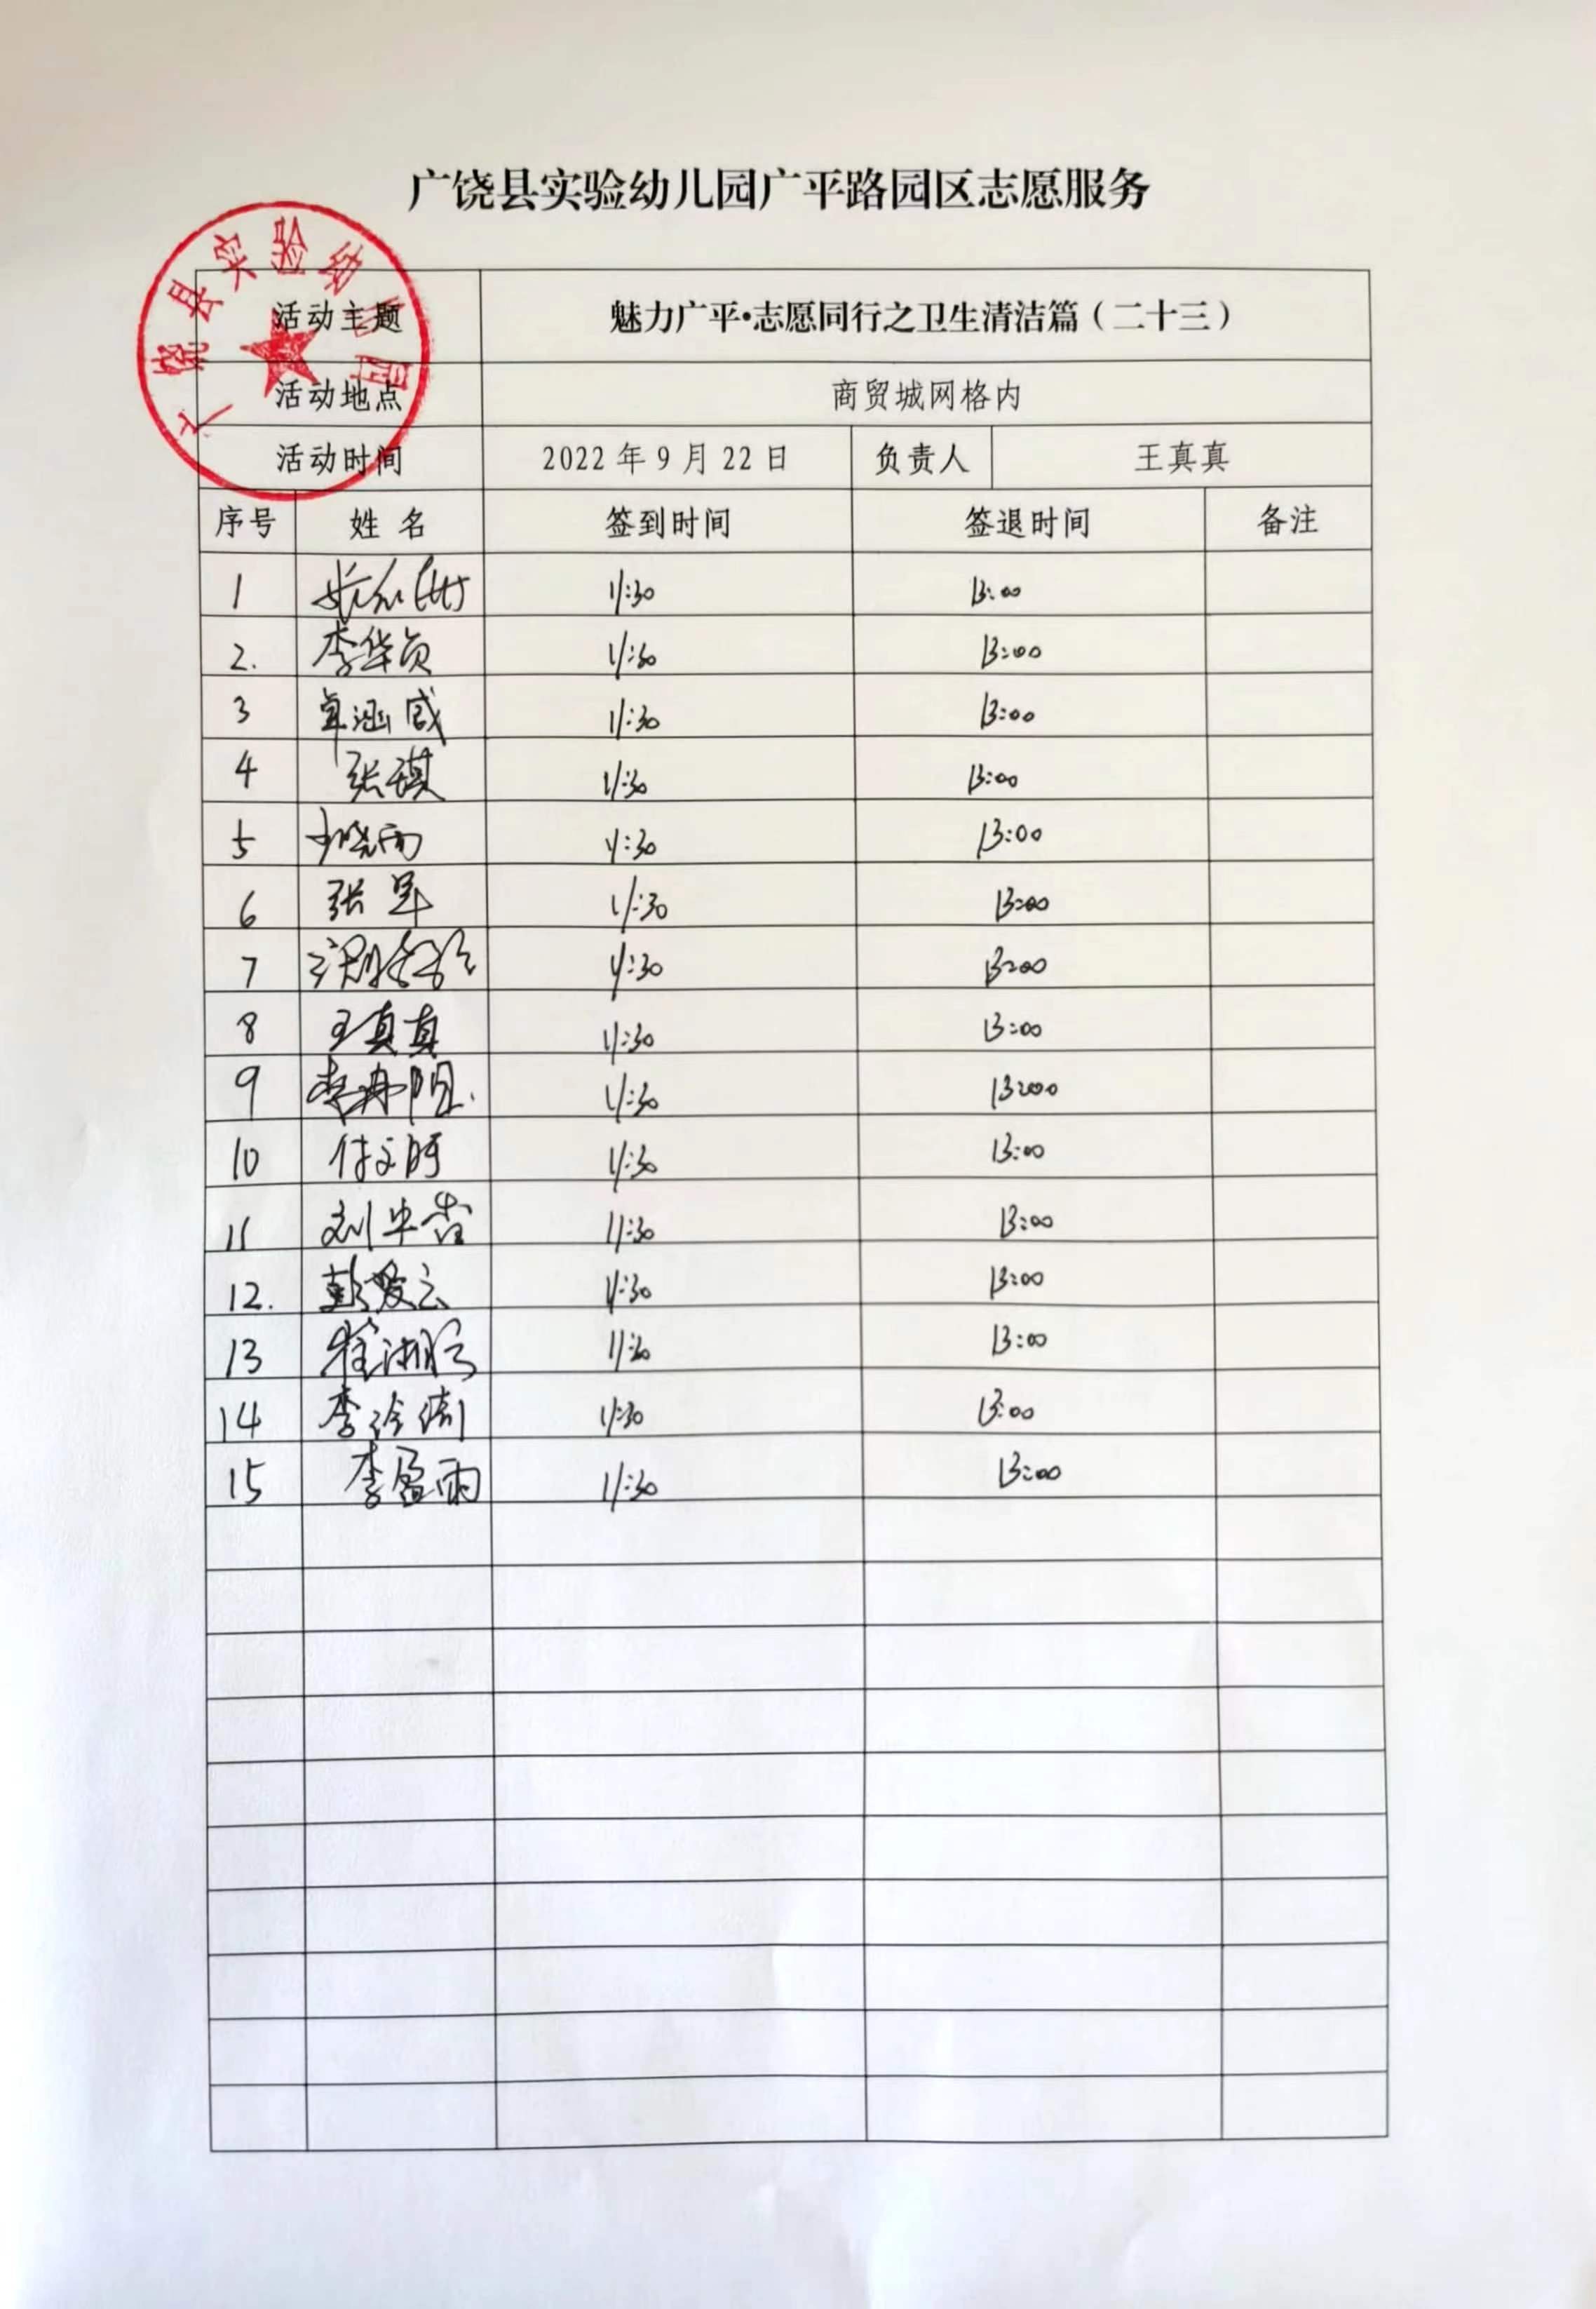 广饶县实验幼儿园广平路园区志愿服务
广饶县实验幼儿园
活动主题 魅力广平•志愿同行之卫生清洁篇（二十三）
活动地点 商贸城网格内
活动时间 2022年9月22日 负责人 王真真
序号 姓名 签到时间 签退时间 备注
1 11:30 13:00
2. 李华贞 11:30 13:00
3 11:30 13:00
4 张琪 11:30 13:00
5 11:30 13:00
6 张昇 11:30 13:00
7 11:30 13:00
8 王真真 11:30 13:00
9 11:30 13:00
10 付文阿 11:30 13:00
11 11:30 13:00
12. 彭爱云 11:30 13:00
13 11:30 13:00
14 11:30 13:00
15 李盈雨 11:30 13:00